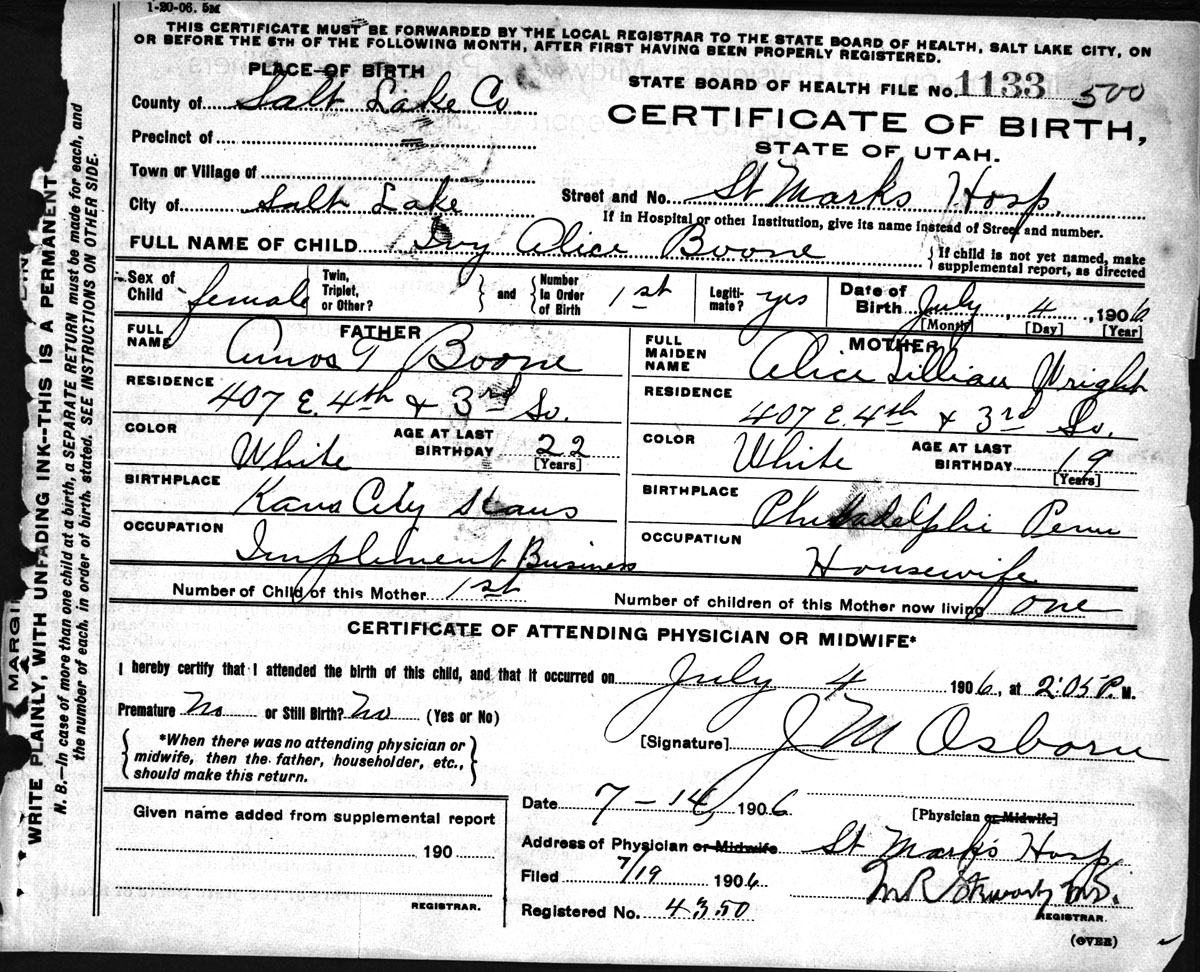 1-20-06. 5M
THIS CERTIFICATE MUST BE FORWARDED BY THE LOCAL REGISTRAR TO THE STATE BOARD OF HEALTH, SALT LAKE CITY, ON
OR BEFORE THE 5TH OF THE FOLLOWING MONTH, AFTER FIRST HAVING BEEN PROPERLY REGISTERED.
PLACE OF BIRTH
STATE BOARD OF HEALTH FILE No. 1133 500
County of Salt Lake Co
CERTIFICATE OF BIRTH,
STATE OF UTAH.
Precinct of
Town or Village of
City of Salt Lake
Street and No. St Marks Hosp.
If in Hospital or other Institution, give its name instead of Street and number.
FULL NAME OF CHILD Ivy Alice Boone
If child is not yet named, make
supplemental report, as directed
Sex of Child female
Twin, Triplet, or Other? and Number In Order of Birth 1st
Legiti-mate? yes
Date of Birth July 4, 1906
[Month] [Day] [Year]
FATHER
FULL NAME Amos T Boone
RESIDENCE 407 E. 4th & 3rd So.
COLOR White
AGE AT LAST BIRTHDAY 22
[Years]
BIRTHPLACE Kans City
OCCUPATION Implement Business
MOTHER
FULL MAIDEN NAME Alice Lillian Wright
RESIDENCE 407 E. 4th & 3rd So.
COLOR White
AGE AT LAST BIRTHDAY 19
[Years]
BIRTHPLACE Philadelphi Penn
OCCUPATION Housewife
Number of Child of this Mother 1st
Number of children of this Mother now living one
CERTIFICATE OF ATTENDING PHYSICIAN OR MIDWIFE*
I hereby certify that I attended the birth of this child, and that it occurred on July 4 1906, at 2:05 P. M.
Premature No or Still Birth? No (Yes or No)
*When there was no attending physician or
midwife, then the father, householder, etc.,
should make this return.
[Signature] J M Osborn
Date 7-14, 1906
[Physician or Midwife]
Given name added from supplemental report
190
REGISTRAR.
Address of Physician or Midwife St Mark's Hosp
Filed 7/19 1906
Registered No. 4350
REGISTRAR.
(OVER)
WRITE PLAINLY, WITH UNFADING INK--THIS IS A PERMANENT
N. B.—In case of more than one child at a birth, a SEPARATE RETURN must be made for each, and
the number of each, in order of birth, stated. SEE INSTRUCTIONS ON OTHER SIDE.